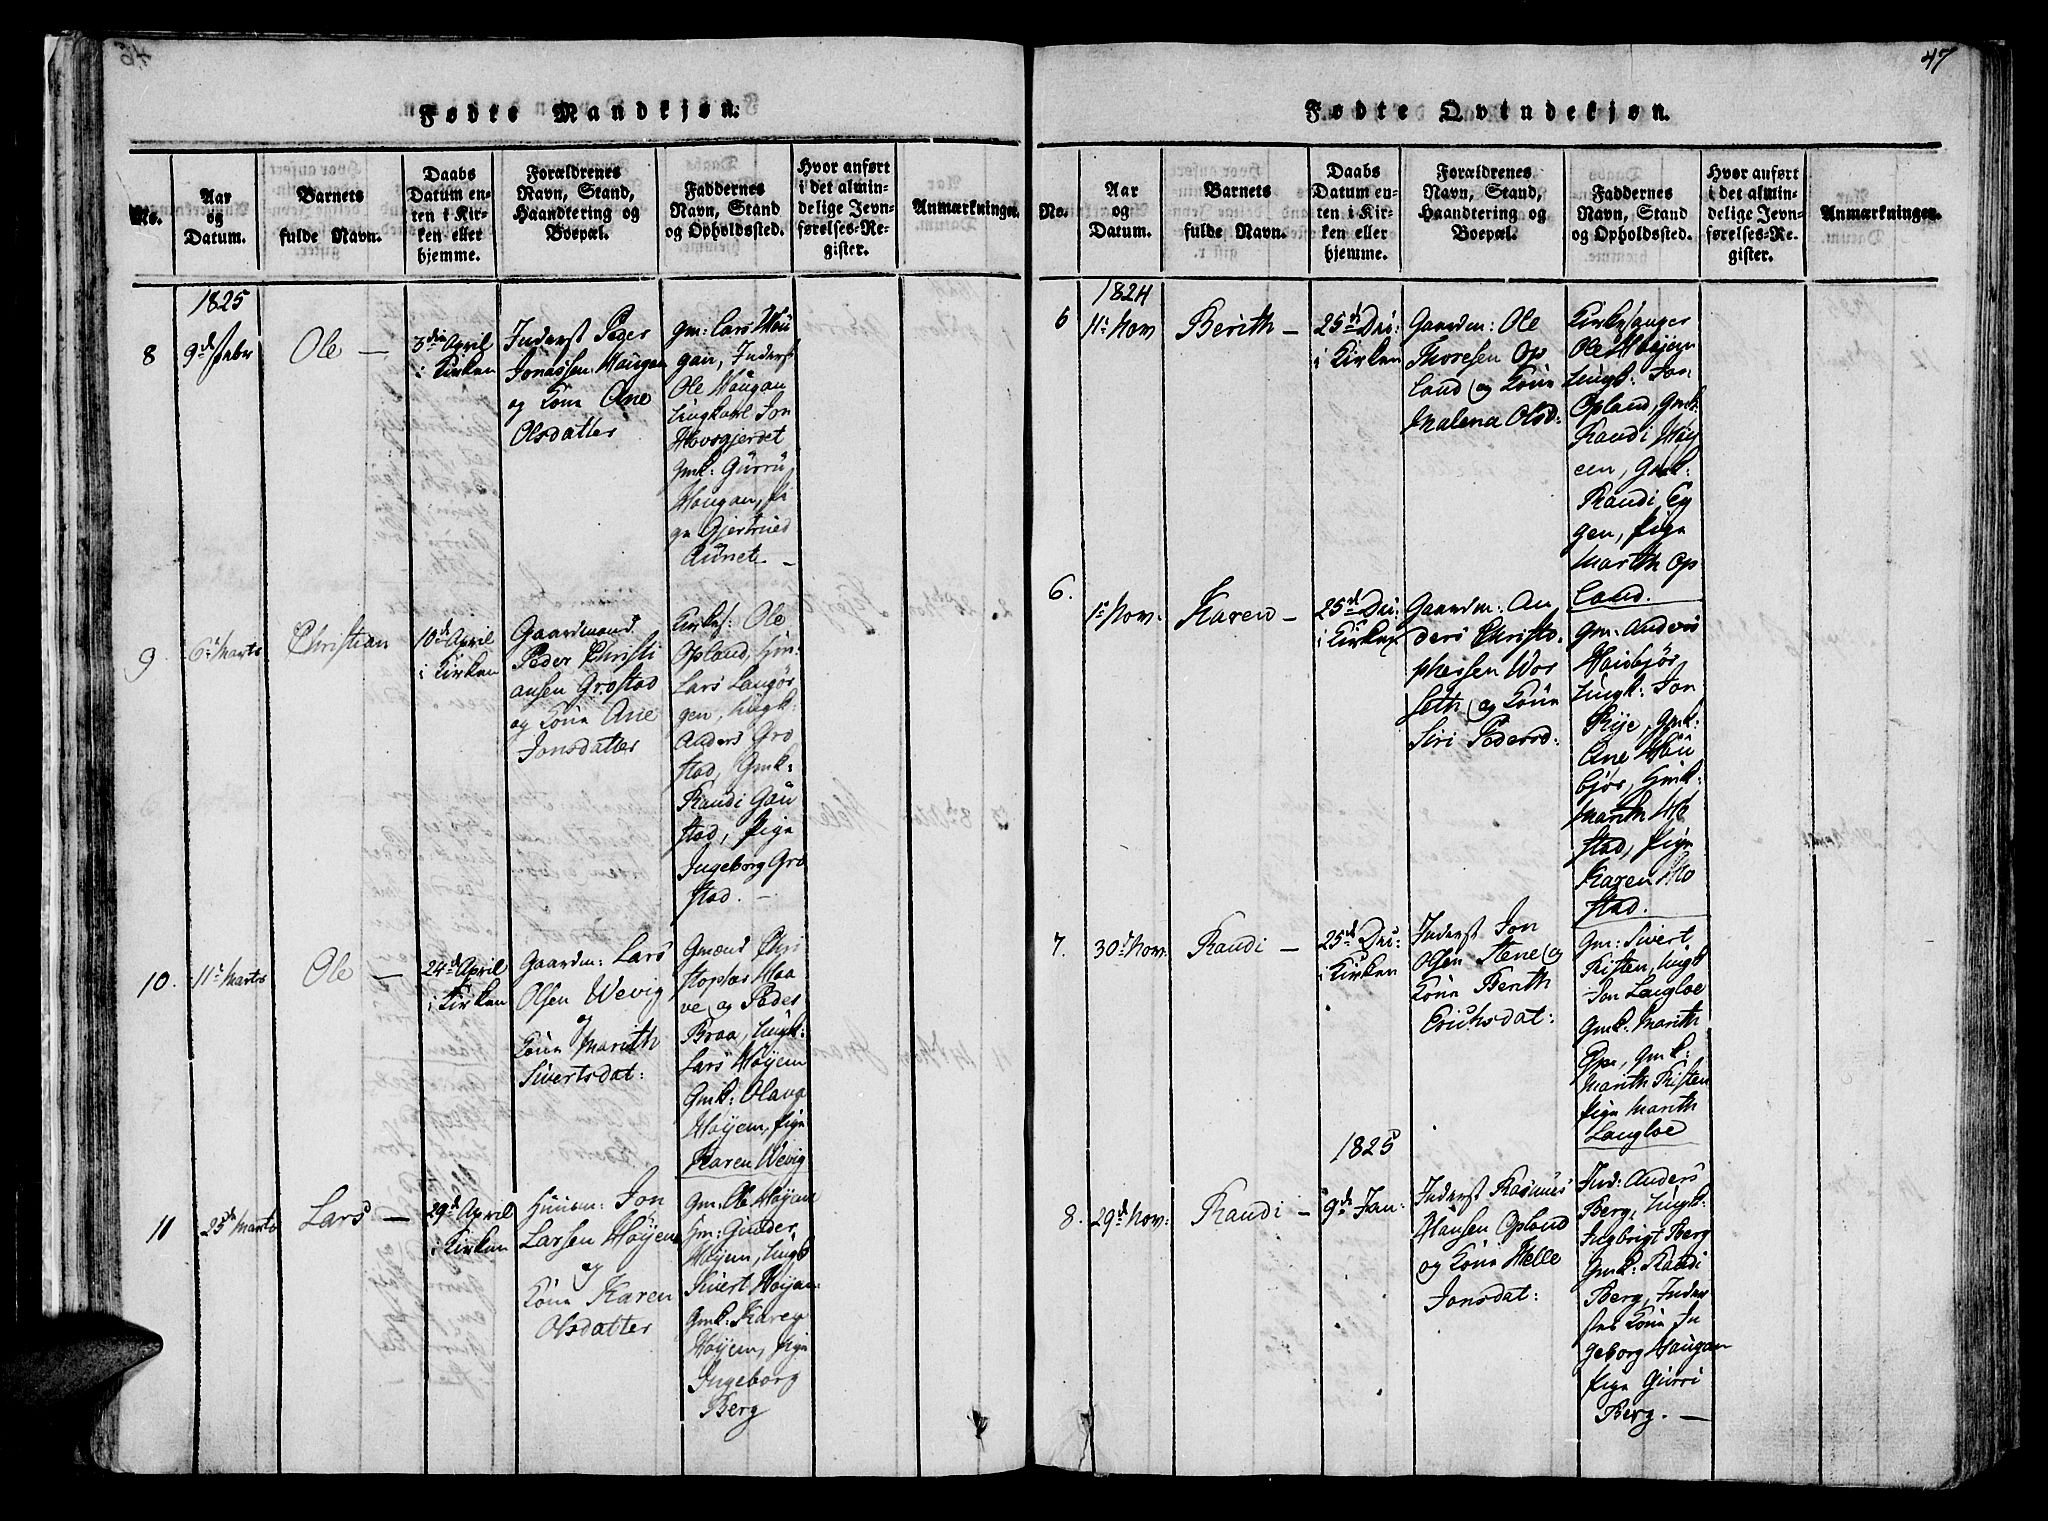 47
Fødte Mandkjøn.
No.
Aar
og
Datum.
Barnets
fulde Navn.
Daabs
Datum en-
ten i Kir-
ken eller
hjemme.
Forældrenes
Navn, Stand,
Haandtering og
Boepæl.
Faddernes
Navn, Stand
og Opholdssted.
Hvor anført
i det almin-
delige Jevn-
førelses-Re-
gister.
Anmærkninger.
1825
8
9d Febr
Ole —
3die April
i Kirken
Inderst Peder
Jonassen Haugan
og Kone Ane
Olsdatter
Gm: Lars Hau
gan, Inderst
Ole Haugan
Ungkarl Jon
Hovsgjerdet
Gmk: Gurru
Haugan, Pi
ge Gjertrued
Aunet —
9
6te Marts
Christian
10de April
i Kirken
Gaardmand
Peder Christi
ansen Grostad
og Kone Ane
Jonsdatter
Kirkes: Ole
Opland
Lars Langør
gen, Ungk:
Anders Gro
stad, Gmk:
Randi Gau
stad, Pige
Ingeborg Gro
stad. —
10.
11te Marts
Ole —
24de April
i Kirken
Gaardm: Lars
Olsen Wevig
og
Kone Marith
Sivertsdat:
Gmand Chri
stopher Haa
ve og Peder
Braa, Ungk:
Lars Høyem
Gmk: Olava
Høyem, Pige
Karen Wevig
11
25de Marts
Lars —
29de April
i Kirken
Huusm: Jon
Larsen Høyem
og
Kone Karen
Olsdatter
Gm: Ole Høyem
Gm: Gunder
Høyem, Ungk
Sivert Høyem
Gmk: Karen
Høyem, Pige
Ingeborg
Berg
Fødte Qvindekjøn.
No.
Aar
og
Datum.
Barnets
fulde Navn.
Daabs
Datum en-
ten i Kir-
ken eller
hjemme.
Forældrenes
Navn, Stand,
Haandtering og
Boepæl.
Faddernes
Navn, Stand
og Opholdssted.
Hvor anført
i det almin-
delige Jevn-
førelses-Re-
gister.
Anmærkninger.
1824
6
11te Nov
Berith —
25de Dec:
i Kirken
Gaardm: Ole
Thoresen Op
land og Kone
Malena Olsd:
Kirkesanger
Ole Høyem
Ungk: Jon
Opland, Gmk:
Randi Høy
em, Gmk:
Randi Ey
gen, Pige
Marith Op
land.
6.
1te Nov.
Karen —
25de Dec:
i Kirken
Gaardm: An
ders Christo
phersen Wor
seth og Kone
Siri Pedersd:
Gm: Anders
Haubjør
Ungk: Jon
Rye, Gmk:
Ane Hau
bjør, Gmk:
Marith Mo
stad, Pige
Karen Mo
stad.
7.
30te Nov.
Randi —
25de Dec:
i Kirken
Inderst Jon
Olsen Stene og
Kone Berith
Erichsdat:
Gm: Sivert
Risten, Ungk
Jon Langloe
Gmk: Marith
Gmk:
Marith Risten
Pige Marith
Langloe
1825
8.
29de Nov:
Randi —
9de Jan:
Inderst Rasmus
Hansen Opland
og Kone Helle
Jonsdat:
Ind: Anders
Berg, Ungk:
Ingbrigt Berg
Gmk: Randi
Berg, Inder
stes Kone In
geborg Haugan
Pige Gurri
Berg. —